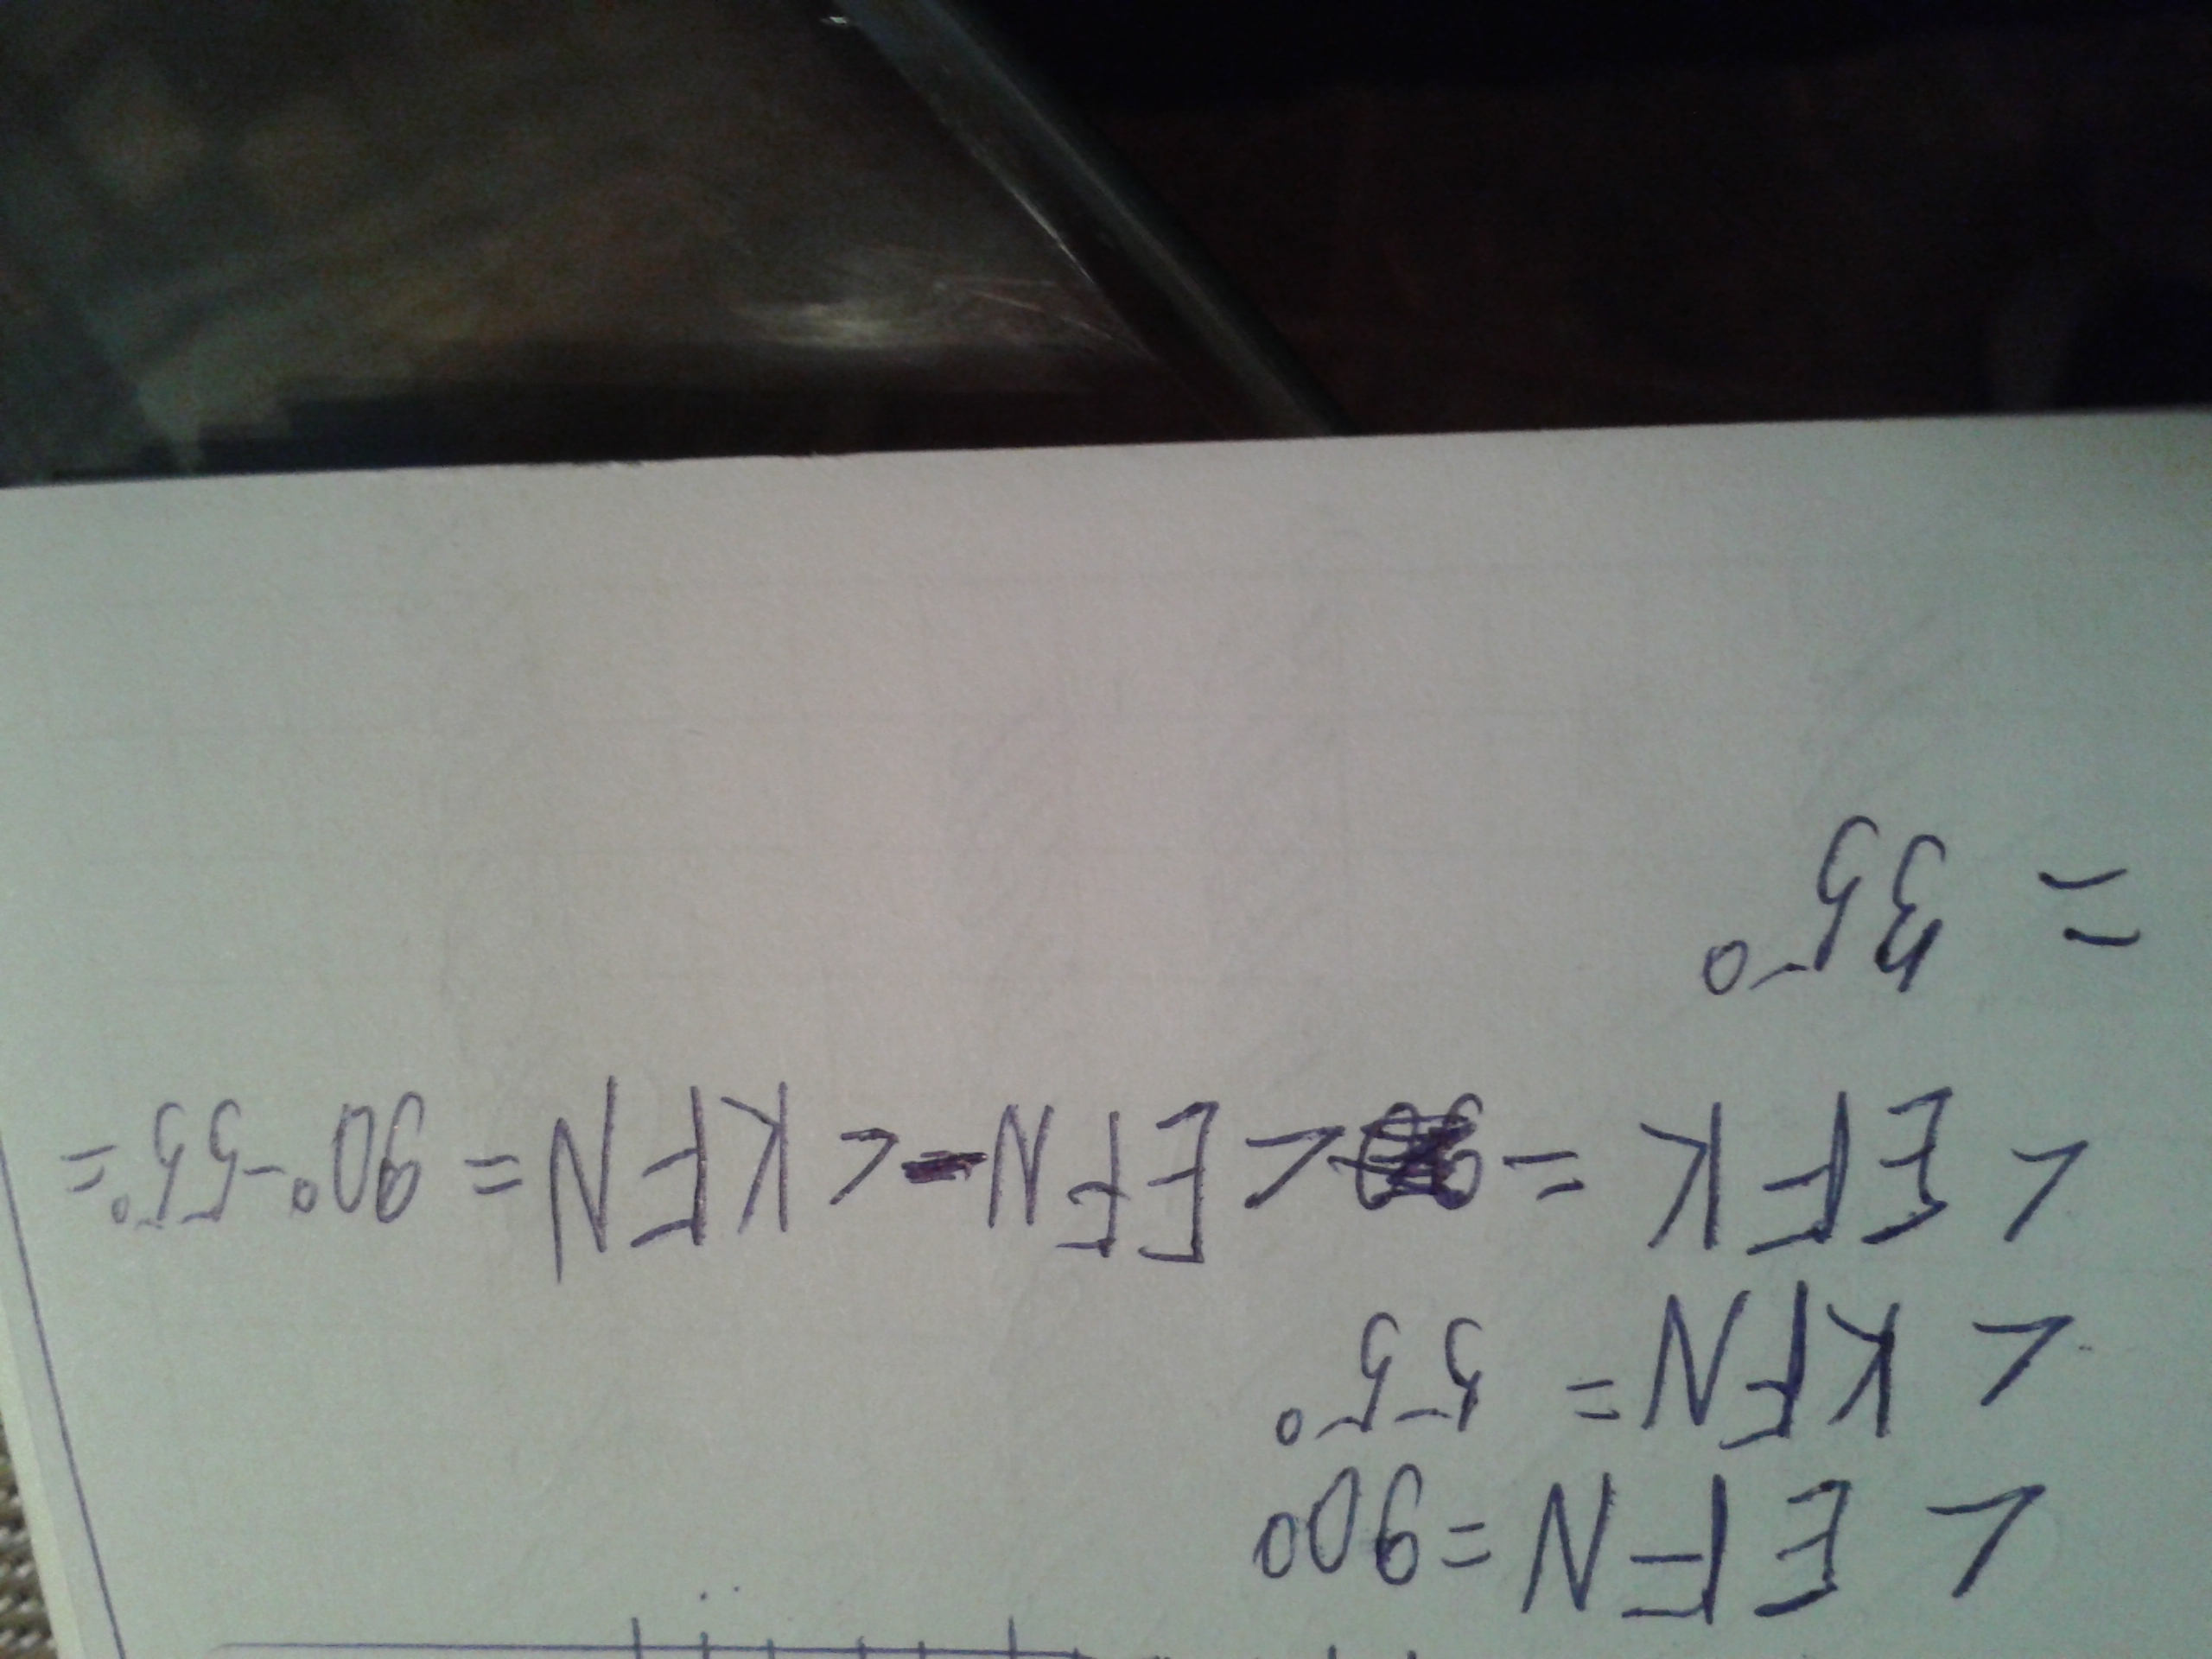 < EFN = 90°
< KFN = 55°
< EFK = < EFN - < KFN = 90° - 55° =
= 35°